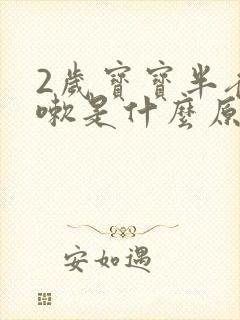 2歲寶寶半
嗽是什麼原
安如遇